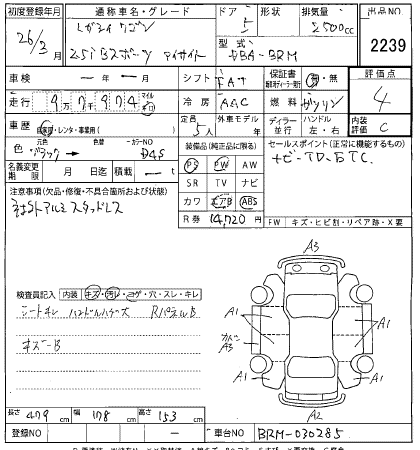 初度登録年月 通称車名・グレード ドア 形状 排気量 出品NO
26/3月 レガシィ ワゴン 5 2500cc 2239
2.5i Bスポーツ アイサイト 型式 DBA-BRM
車検 ー年ー月 シフト FAT 保証書 有・無 評価点
走行 冷房 AAC 燃料 ガソリン 4
車歴 自家用・レンタ・事業用( ) 定員 5人 外車モデル 年 ディーラー 並行 ハンドル 左・右 内装評価 C
色 元色 ブラック → 色替 カラーNO D4S 装備品(純正品に限る) セールスポイント(正常に機能するもの)
名義変更期限 月 日迄 積載 ー t PS PW AW ナビ・TD・ETC.
注意事項(欠品・修復・不具合箇所および状態) SR TV ナビ
アルミ スタッドレス カワ エアB ABS
R券 14,720円 FW キズ・ヒビ割・リペア跡・X要
A3
検査員記入 内装 キズ・汚レ・コゲ・穴・スレ・キレ A1 A1
シートキレ ハンドルハゲキズ RパネルB A3
キズーB A1 A1
A2
長さ 479cm 幅 178cm 高さ 153cm
登録NO ー 車台NO BRM-030285